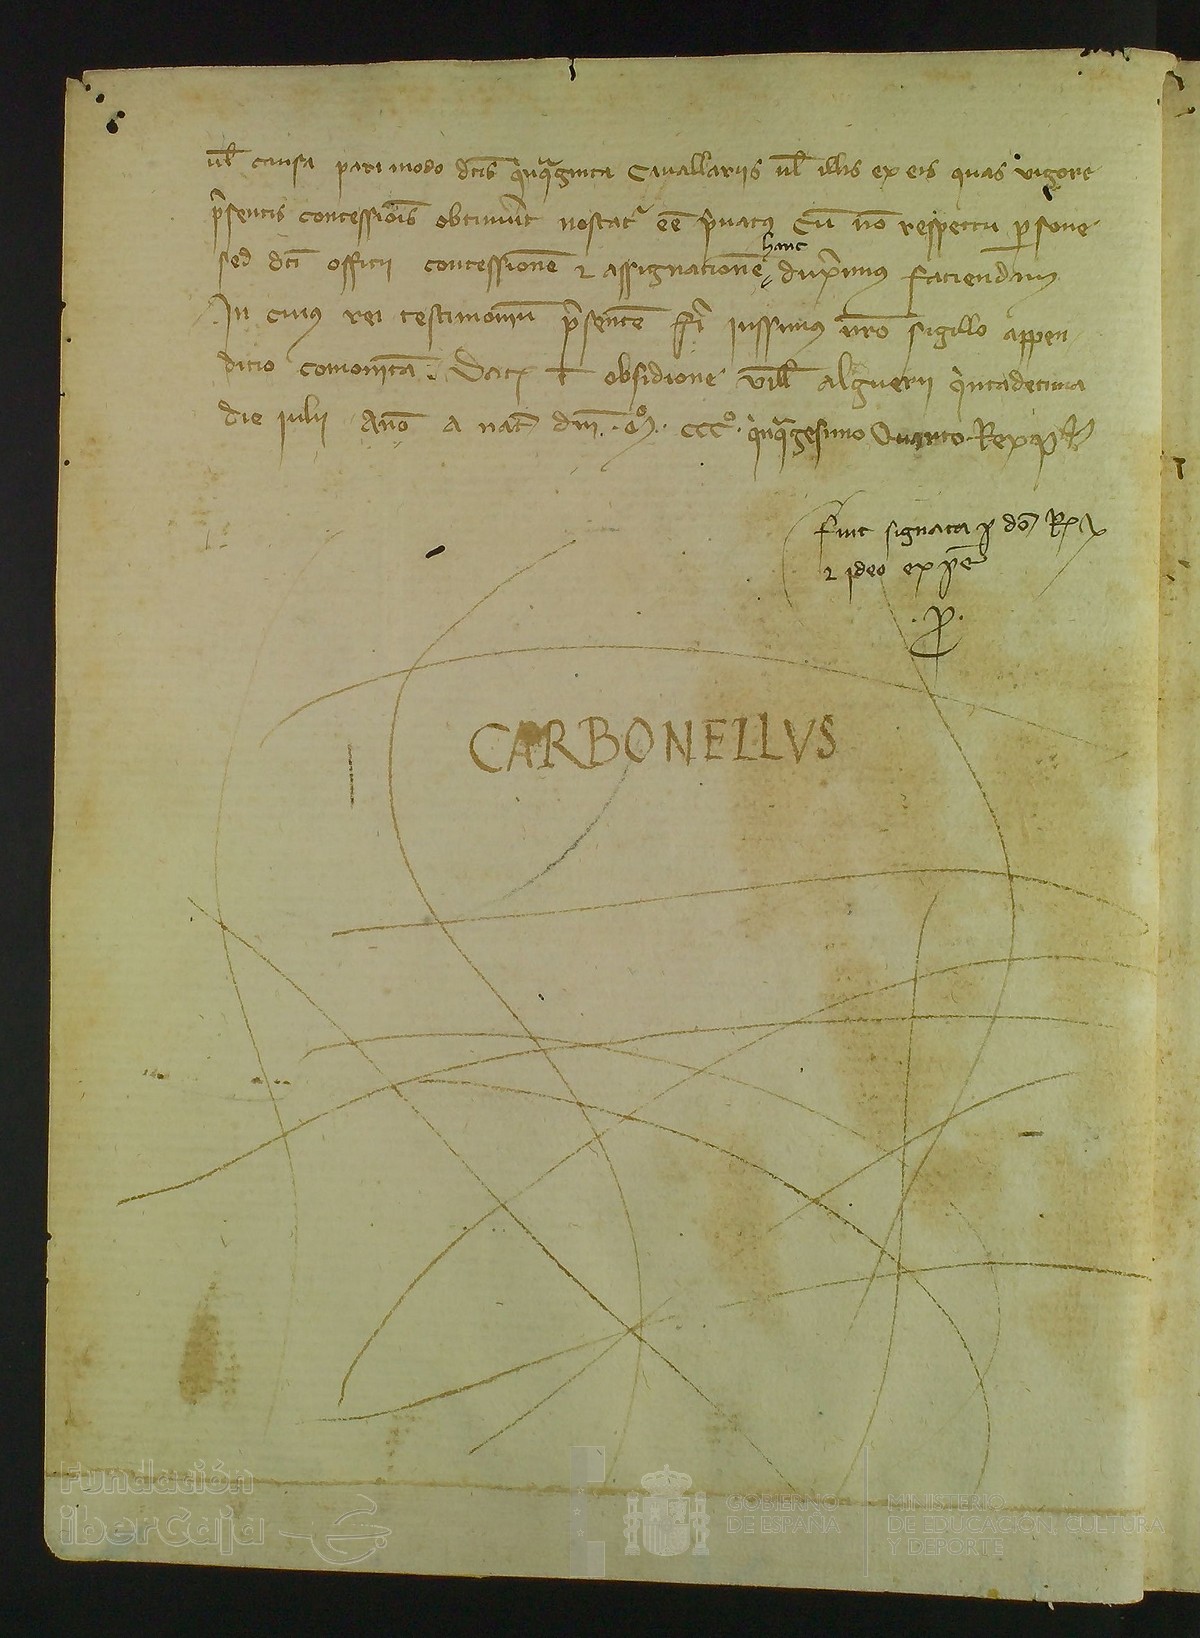 ul causa pari modo dcis quinquaginta Cavallariis ul illis ex eis quas vigore
presentis concessiois obtinuit noscatr ee privatus Cu no respectu persone
sed dci officii concessione ⁊ assignatione hanc duximus faciendam
In cuius rei testimoniu presente fieri iussimus nro sigillo appen
dicio comonita. Dat obsidione Ville Alguerii quintadecima
die iulii Ano a nat dni Mo CCCo quinquagesimo Quarto Rex P
fuit signata per dom R
⁊ ideo expe
.P.
CARBONELLVS
Fundación
iberCaja
GOBIERNO
DE ESPAÑA
MINISTERIO
DE EDUCACIÓN, CULTURA
Y DEPORTE